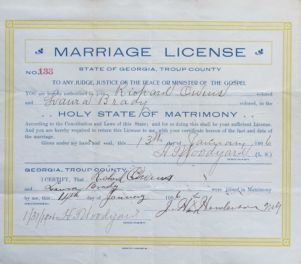 MARRIAGE LICENSE
STATE OF GEORGIA, TROUP COUNTY
NO. 133
TO ANY JUDGE, JUSTICE OF THE PEACE OR MINISTER OF THE GOSPEL
You are hereby authorized to join Richard Owens colored
and Laura Brady colored, in the
HOLY STATE OF MATRIMONY
According to the Constitution and Laws of this State; and for so doing this shall be your sufficient License.
And you are hereby required to return this License to me with your certificate hereon of the fact and date
of the marriage.
Given under my hand and seal, this 13th January 1906
H. Woodyard (L. S.)
GEORGIA, TROUP COUNTY
I CERTIFY, That Richard Owens
and Laura Brady were joined in Matrimony
by me, this 14th day of January 1906
J. H. Henderson
H Woodyard